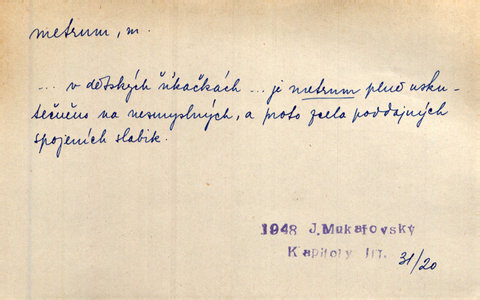 metrum, n.
... v dětských říkačkách ... je metrum plně usku-
tečněno na nesmyslných, a proto zcela poddajných
spojeních slabik.
1948 J.Mukařovský
Kapitoly III.
31/20